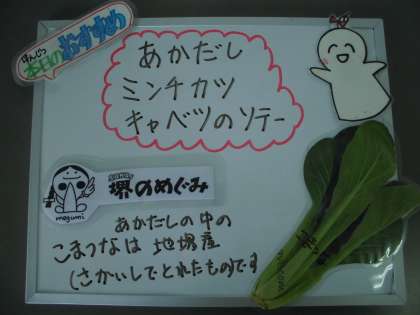 ほんじつ
本日のおすすめ
あかだし
ミンチカツ
キャベツのソテー
堺のめぐみ
megumi
あかだしの中の
こまつなは地場産
(さかいしでとれたものです